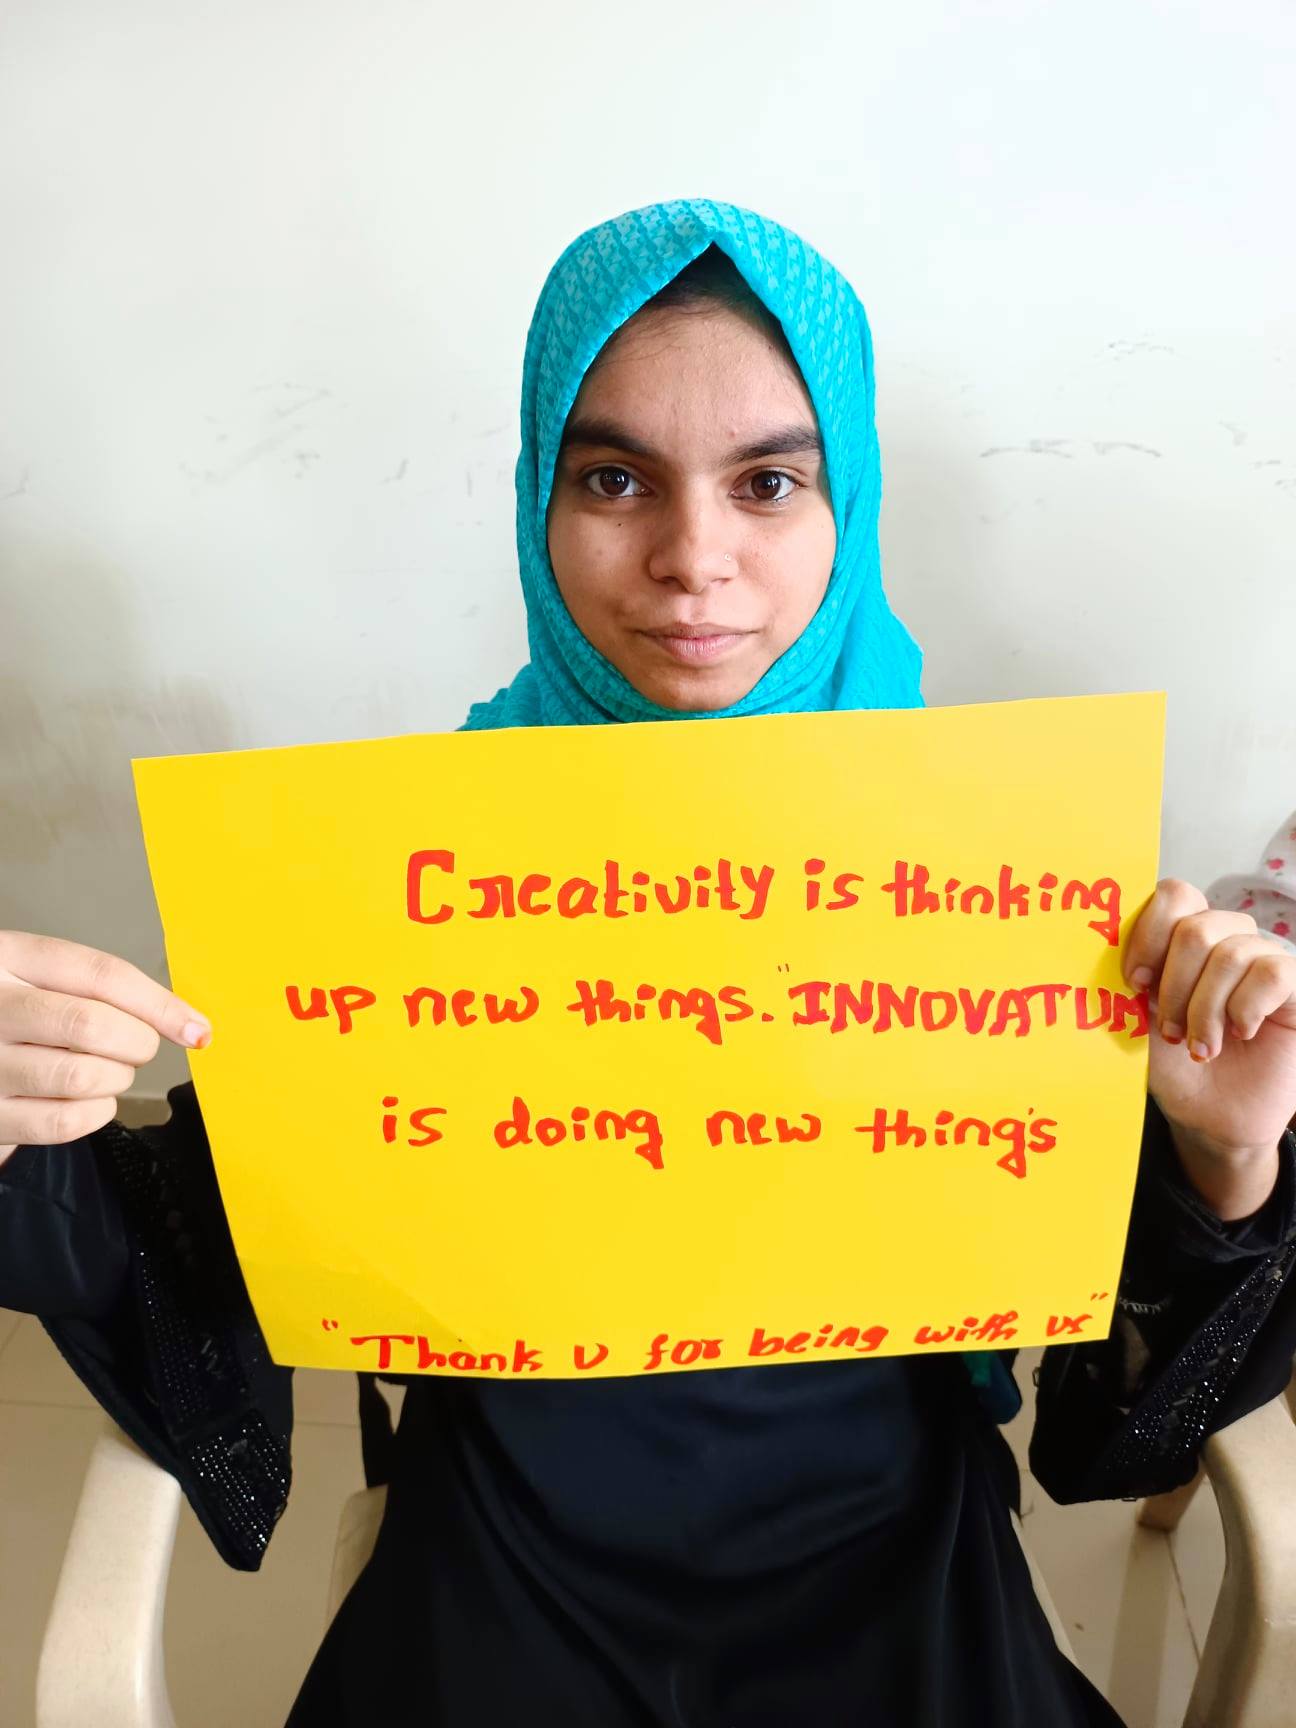 Creativity is thinking
up new things. "INNOVATUM
is doing new thing's
"Thank U for being with us"